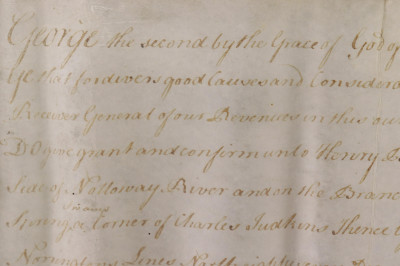 George the second by the Grace of God of
Ye that for divers good Causes and Considera
Receiver General of our Revenues in this our
Do give grant and confirm unto Henry
Side of Nottoway River and on the Branc
Corner of Charles Judkins Thence
Lines North